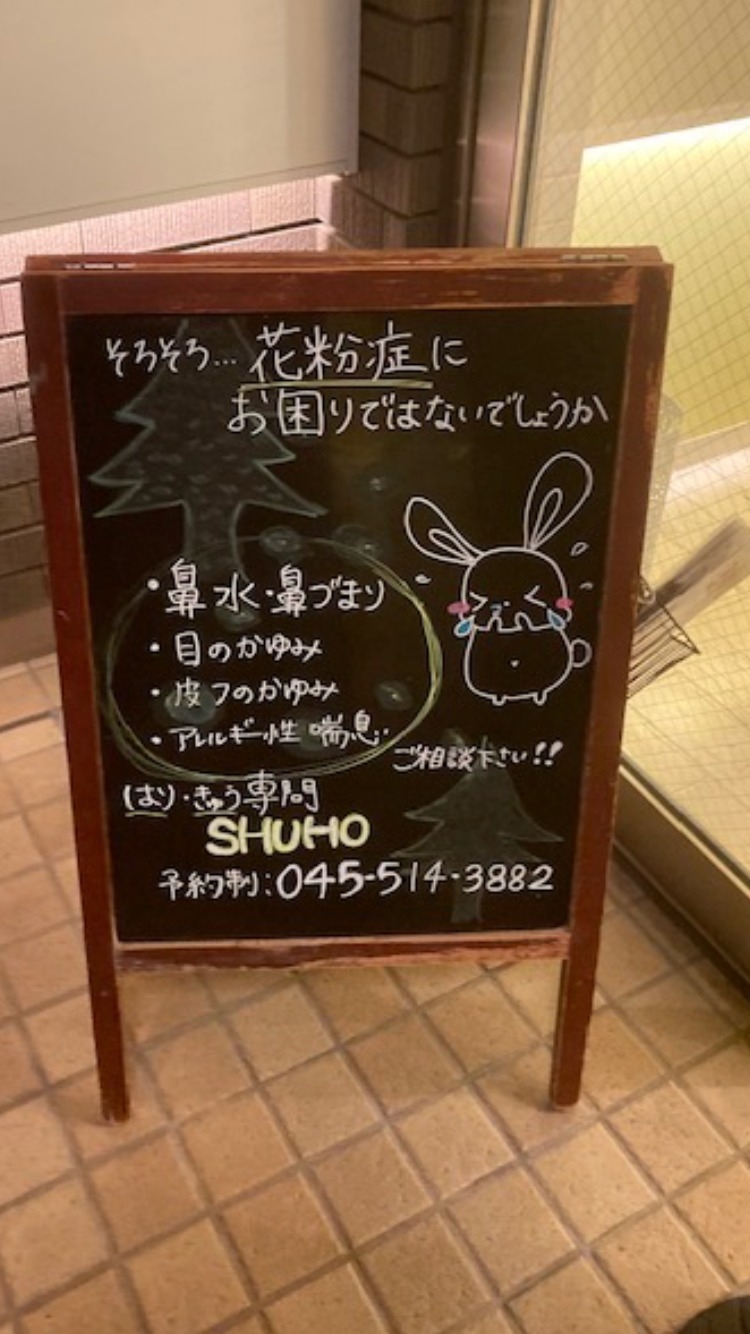 そろそろ… 花粉症に
お困りではないでしょうか
・鼻水・鼻づまり
・目のかゆみ
・皮フのかゆみ
・アレルギー性 喘息…
ご相談下さい!!
はり・きゅう専門
SHUHO
予約制:045-514-3882